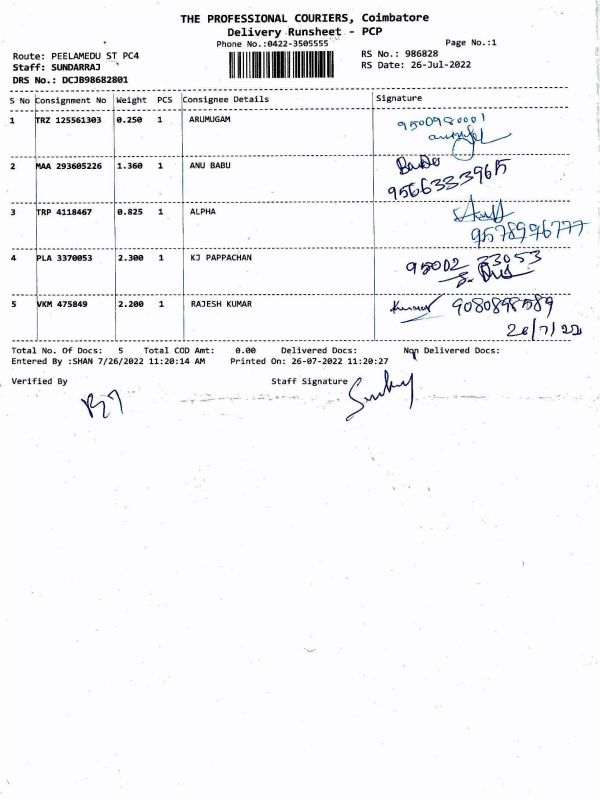 THE PROFESSIONAL COURIERS, Coimbatore
Delivery Runsheet - PCP
Phone No.:0422-3505555 Page No.:1
Route: PEELAMEDU ST PC4 RS No.: 986828
Staff: SUNDARRAJ RS Date: 26-Jul-2022
DRS No.: DCJB98682801
S No Consignment No Weight PCS Consignee Details Signature
1 TRZ 125561303 0.250 1 ARUMUGAM 9500980001
2 MAA 293605226 1.360 1 ANU BABU Babu
9566333965
3 TRP 4118467 0.825 1 ALPHA
9578996777
4 PLA 3370053 2.300 1 KJ PAPPACHAN 95002 33053
5 VKM 475849 2.200 1 RAJESH KUMAR Kumar 9080898589
26/7/22
Total No. Of Docs: 5 Total COD Amt: 0.00 Delivered Docs: Non Delivered Docs:
Entered By :SHAN 7/26/2022 11:20:14 AM Printed On: 26-07-2022 11:20:27
Verified By Staff Signature